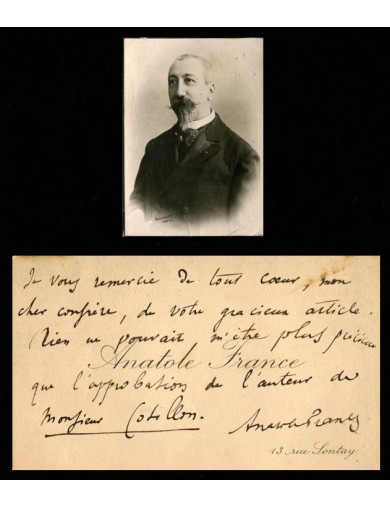 Je vous remercie de tout cœur, mon
cher confrère, de votre gracieux article.
Rien ne pouvait m'être plus précieux
Anatole France
que l'approbation de l'auteur de
Monsieur Cotillon.
Anatole France
13 rue Sontay